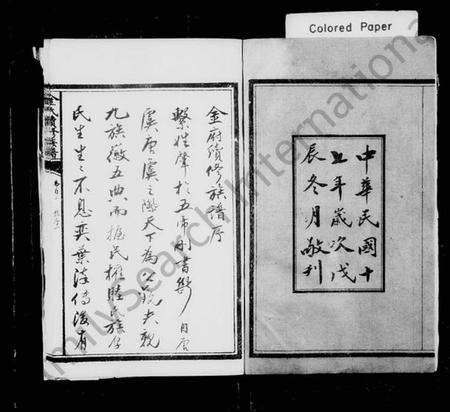 Colored Paper
中華民國十
五年歲次戊
辰冬月敬刊
金府續修族譜序
繫姓肇於五帝刪書斷自唐
虞唐虞之際天下為公堯夫親
九族徽五典而
民生生不息奕葉流傳後有
FamilySearch International